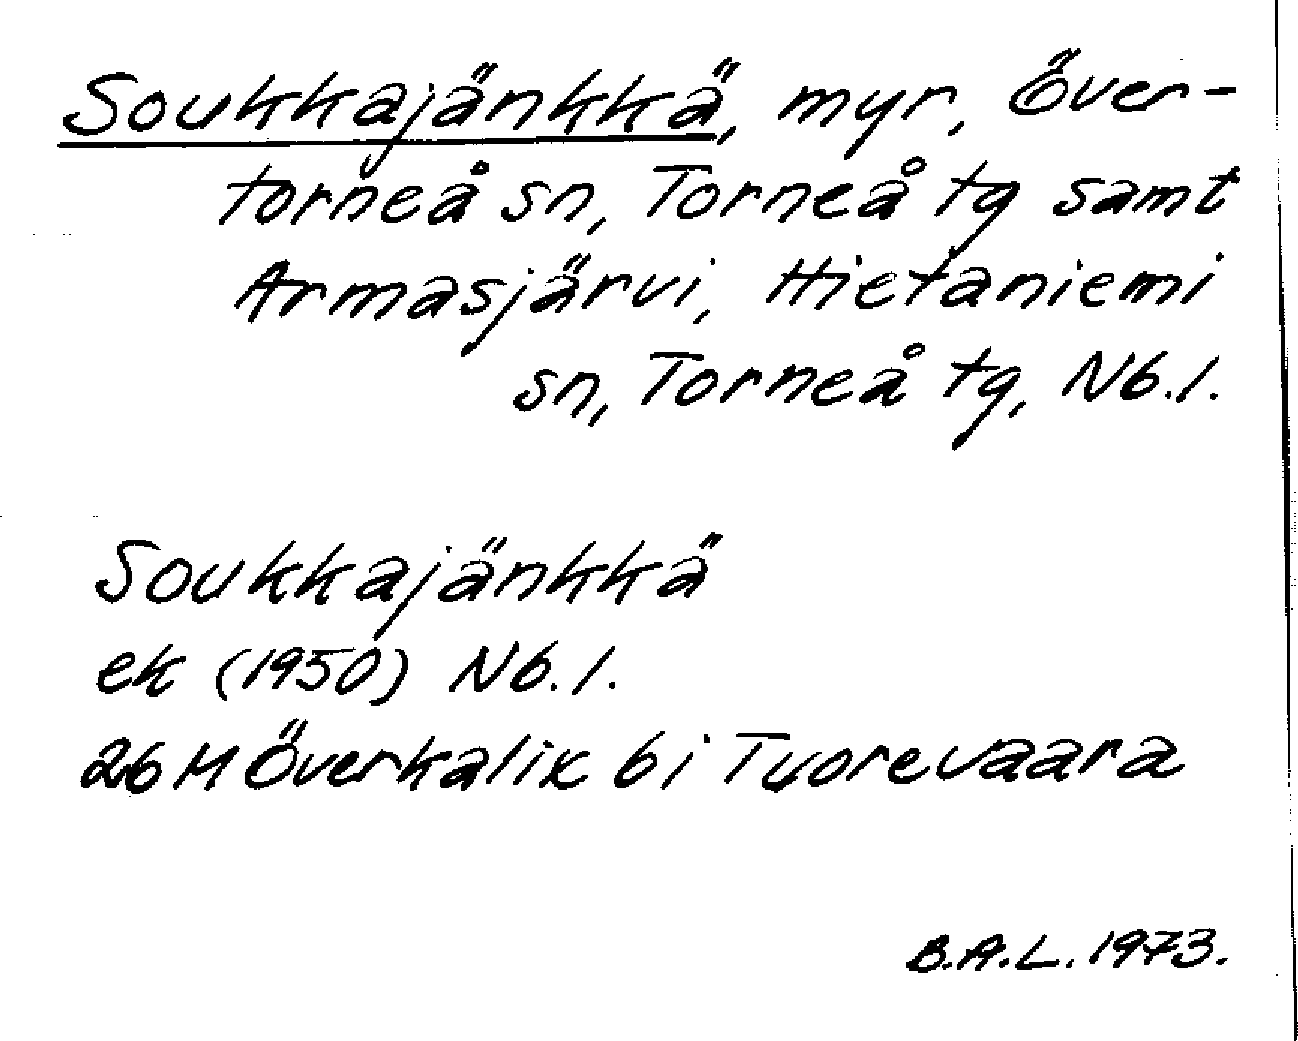 Soukkajänkkä, myr, Över-
torneå sn, Torneå tg samt
Armasjärvi, Hietaniemi
sn, Torneå tg, Nb.l.
Soukkajänkkä
ek (1950) Nb.l.
26 M Överkalix 6 i Tuorevaara
B.A.L. 1973.